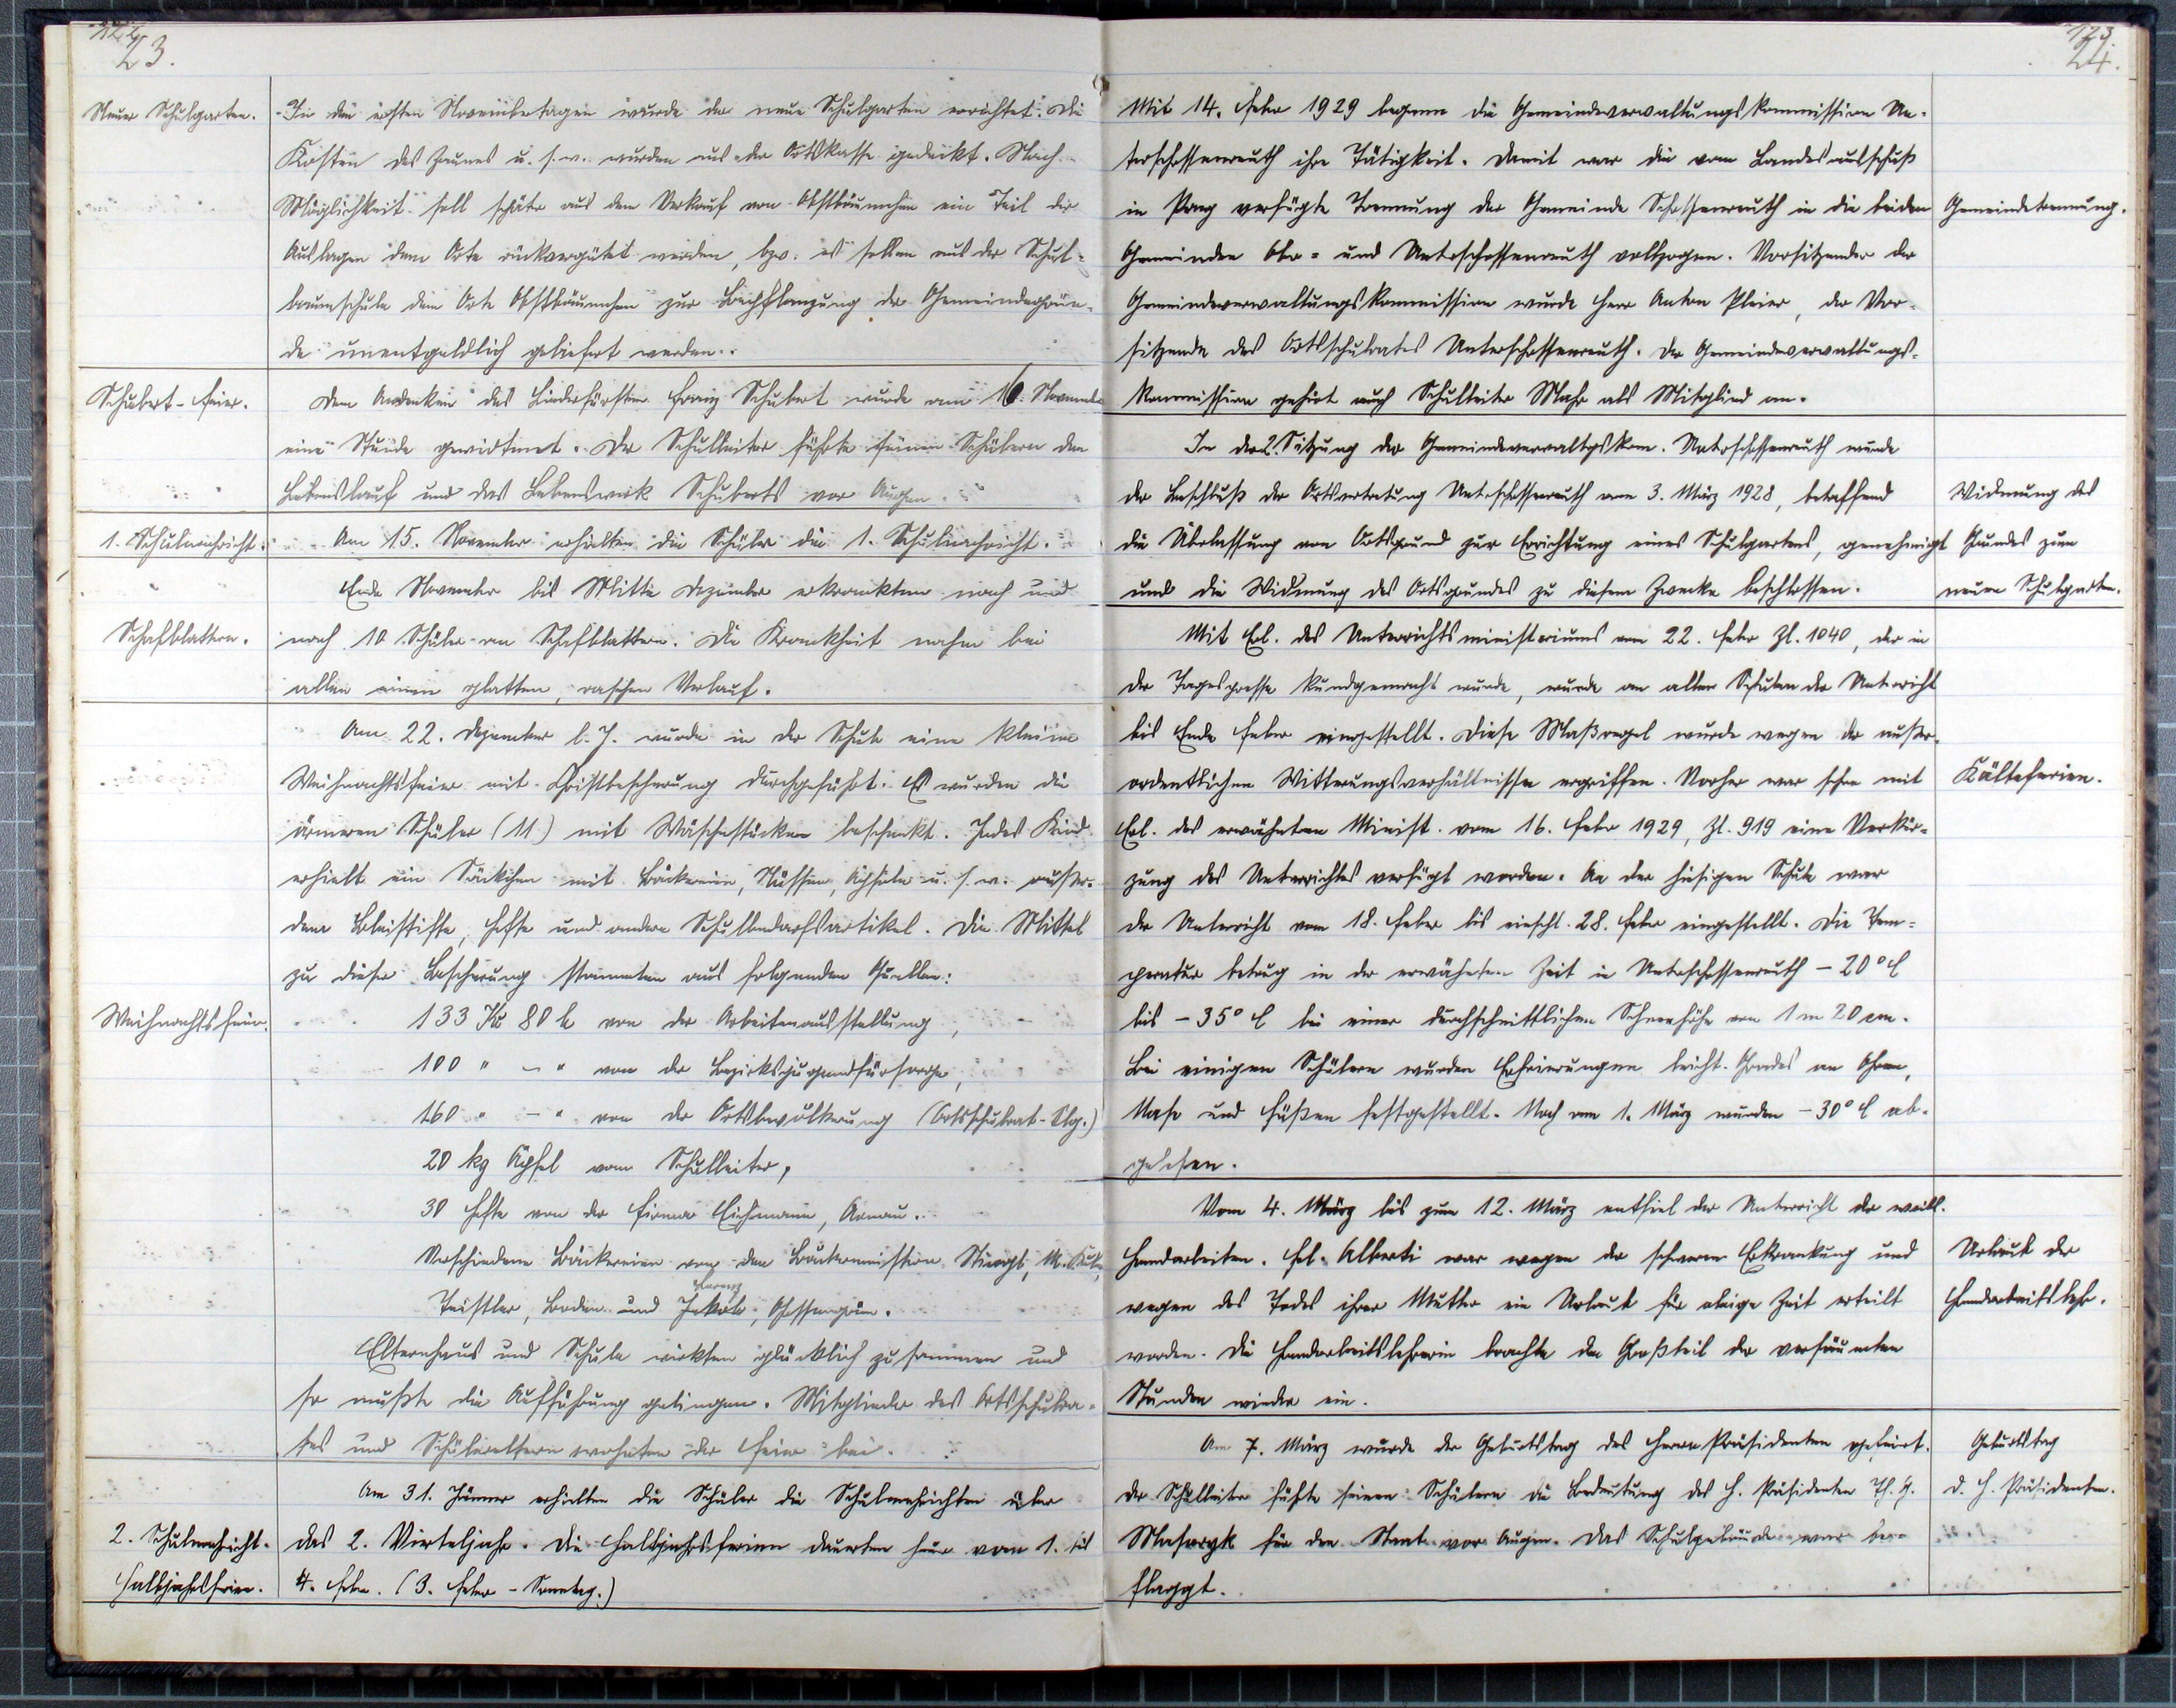 23.
Neuer Schulgarten.
In den ersten Novembertagen wurde der neue Schulgarten errichtet. Die
Kosten des Zaunes u. s. w. wurden aus der Ortskasse gedeckt. Nach
Möglichkeit soll später aus dem Verkauf von Obstbäumchen ein Teil der
Auslagen dem Orte rückvergütet werden, bzw. es sollen aus der Schul-
baumschule dem Orte Obstbäumchen zur Bepflanzung der Gemeindegrün-
de unentgeldlich geliefert werden.
Schubert-Feier.
Dem Andenken des Liederfürsten Franz Schubert wurde am 16. November
eine Stunde gewidmet. Der Schulleiter führte seinen Schülern den
Lebenslauf und das Lebenswerk Schuberts vor Augen.
1. Schulnachricht.
Am 15. November erhielten die Schüler die 1. Schulnachricht.
Ende November bis Mitte Dezember erkrankten nach und
Schafblattern.
nach 10 Schüler an Schafblattern. Die Krankheit nahm bei
allen einen glatten, raschen Verlauf.
Am 22. Dezember l. J. wurde in der Schule eine kleine
Weihnachtsfeier mit Christbescherung durchgeführt. Es wurden die
ärmeren Schüler (11) mit Wäschestücken beschenkt. Jedes Kind
erhielt ein Säckchen mit Bäckereien, Nüssen, Äpfeln u. s. w. außer-
dem Bleistifte, Hefte und andere Schulbedarfsartikel. Die Mittel
zu dieser Bescherung stammten aus folgenden Quellen:
Weihnachtsfeier.
133 Kč 80 h von der Arbeitenausstellung,
100 " - " von der Bezirksjugendfürsorge,
160 " - " von der Ortsbevölkerung (Ortsschulrat-Slg.)
20 kg Äpfel vom Schulleiter,
30 Hefte von der Firma Eichmann, Arnau.
Verschiedene Bäckereien von den Bäckermeistern
und Lorenz
Elternhaus und Schule wirkten glücklich zusammen und
so mußte die Aufführung gelingen. Mitglieder des Ortsschulra-
tes und Schülereltern wohnten der Feier bei.
Am 31. Jänner erhielten die Schüler die Schulnachrichten über
2. Schulnachricht.
das 2. Vierteljahr. Die Halbjahrsferien dauerten heuer vom 1. bis
Halbjahrsferien.
4. Feber. (3. Feber - Sonntag.)
24.
Mit 14. Feber 1929 begann die Gemeindeverwaltungskommission Un-
terschossenreuth ihre Tätigkeit. Damit war die vom Landesausschuß
in Prag verfügte Trennung der Gemeinde Schossenreuth in die beiden
Gemeindetrennung.
Gemeinden Ober- und Unterschossenreuth vollzogen. Vorsitzender der
Gemeindeverwaltungskommission wurde Herr Anton Pleier, der Vor-
sitzende des Ortsschulrates Unterschossenreuth. Der Gemeindeverwaltungs-
kommission gehört auch Schulleiter Mahr als Mitglied an.
In der 2. Sitzung der Gemeindeverwaltgskom. Unterschossenreuth wurde
der Beschluß der Ortsvertretung Unterschossenreuth vom 3. März 1928, betreffend
Widmung des
die Überlassung von Ortsgrund zur Errichtung eines Schulgartens, genehmigt
Grundes zum
und die Widmung des Ortsgrundes zu diesem Zwecke beschlossen.
neuen Schulgarten.
Mit Erl. des Unterrichtsministeriums vom 22. Feber Zl. 1040, der in
der Tagespresse kundgemacht wurde, wurde an allen Schulen der Unterricht
bis Ende Feber eingestellt. Diese Maßregel wurde wegen der außer-
ordentlichen Witterungsverhältnisse ergriffen. Vorher war schon mit
Kälteferien.
Erl. des erwähnten Minist. vom 16. Feber 1929, Zl. 919 eine Verkür-
zung des Unterrichtes verfügt worden. An der hiesigen Schule war
der Unterricht vom 18. Feber bis einschl. 28. Feber eingestellt. Die Tem-
peratur betrug in der erwähnten Zeit in Unterschossenreuth - 20° C
bis - 35° C bei einer durchschnittlichen Schneehöhe von 1 m 20 cm.
Bei einigen Schülern wurden Erfrierungen leicht. Grades an Ohren,
Nase und Füßen festgestellt. Noch am 1. März wurden - 30° C ab-
gelesen.
Vom 4. März bis zum 12. März entfiel der Unterricht der weibl.
Handarbeiten. Frl. Alberti war wegen der schweren Erkrankung und
Urlaub der
wegen des Todes ihrer Mutter ein Urlaub für obige Zeit erteilt
Handarbeitslehr.
worden. Die Handarbeitslehrerin brachte den Großteil der versäumten
Stunden wieder ein.
Am 7. März wurde der Geburtstag des Herrn Präsidenten gefeiert.
Geburtstag
Der Schulleiter führte seinen Schülern die Bedeutung des H. Präsidenten Th. G.
d. H. Präsidenten.
Masaryk für den Staat vor Augen. Das Schulgebäude war be-
flaggt.